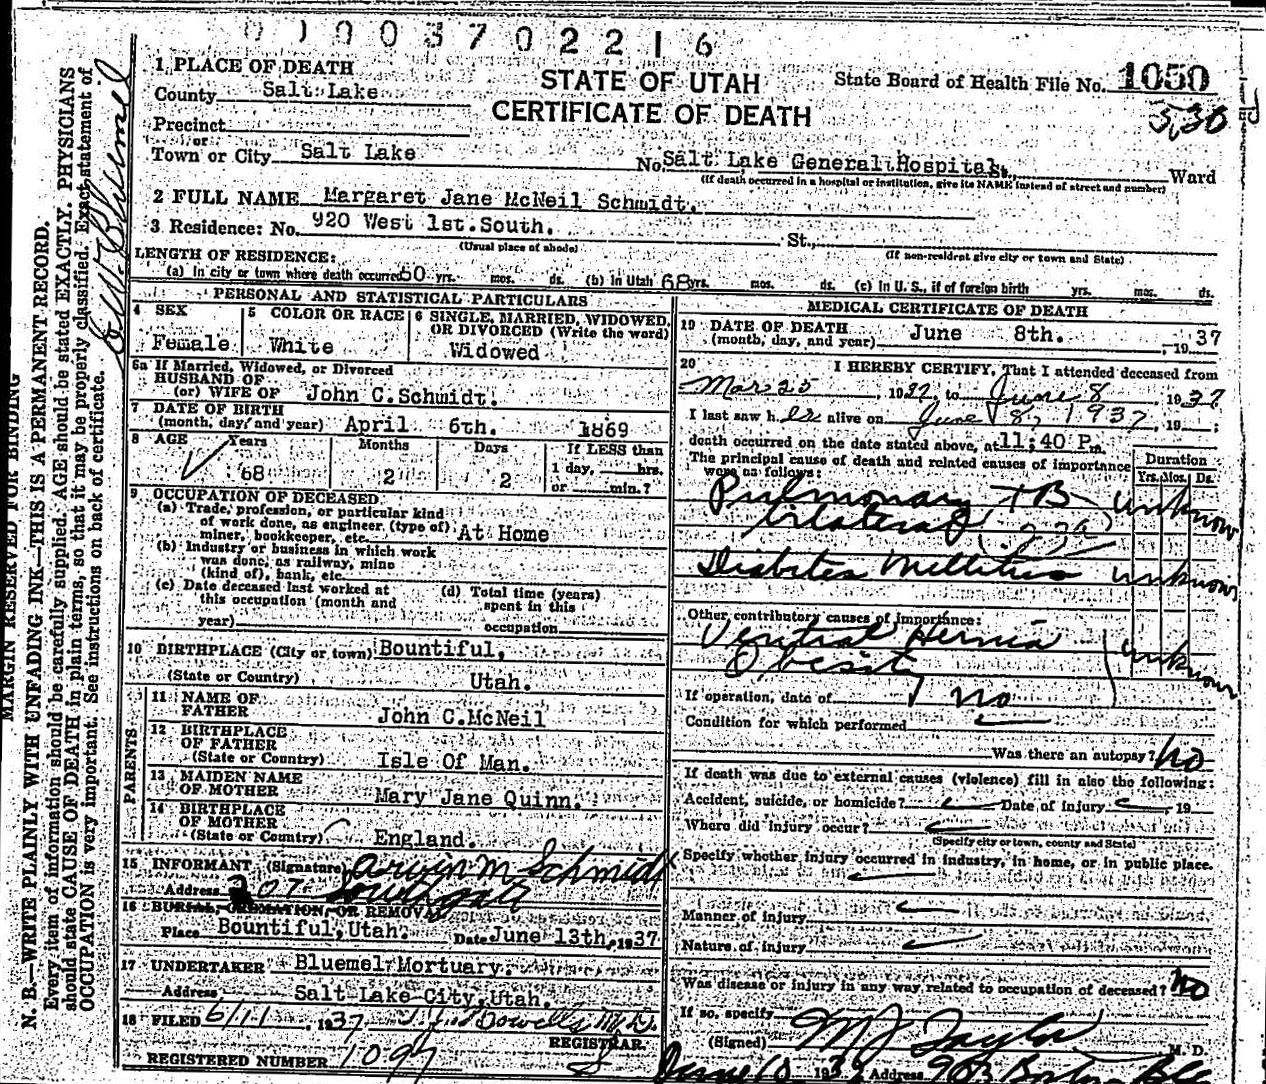 0100370221 6
1 PLACE OF DEATH
County Salt Lake
Precinct
or
Town or City Salt Lake
STATE OF UTAH
CERTIFICATE OF DEATH
State Board of Health File No. 1050
No. Salt Lake General Hospital St., Ward
(If death occurred in a hospital or institution, give its NAME instead of street and number)
2 FULL NAME Margaret Jane McNeil Schmidt.
3 Residence: No. 920 West 1st. South. St.,
(Usual place of abode)
(If non-resident give city or town and State)
LENGTH OF RESIDENCE:
(a) In city or town where death occurred 50 yrs. mos. ds. (b) In Utah 68 yrs. mos. ds. (c) In U. S., if of foreign birth yrs. mos. ds.
PERSONAL AND STATISTICAL PARTICULARS
4 SEX
Female
5 COLOR OR RACE
White
6 SINGLE, MARRIED, WIDOWED, OR DIVORCED (Write the word)
Widowed
6a If Married, Widowed, or Divorced
HUSBAND OF
(or) WIFE OF John C. Schmidt.
7 DATE OF BIRTH
(month, day, and year) April 6th. 1869
8 AGE Years Months Days If LESS than
68 2 2 1 day, hrs.
or min.?
9 OCCUPATION OF DECEASED
(a) Trade, profession, or particular kind
of work done, as engineer, (type of)
miner, bookkeeper, etc. At Home
(b) Industry or business in which work
was done, as railway, mine
(kind of), bank, etc.
(c) Date deceased last worked at
this occupation (month and
year)
(d) Total time (years)
spent in this
occupation
10 BIRTHPLACE (City or town) Bountiful,
(State or Country) Utah.
PARENTS
11 NAME OF
FATHER John C. McNeil
12 BIRTHPLACE
OF FATHER
(State or Country) Isle Of Man.
13 MAIDEN NAME
OF MOTHER Mary Jane Quinn.
14 BIRTHPLACE
OF MOTHER
(State or Country) England.
15 INFORMANT (Signature) Arwin M Schmidt
Address 207 Southgate
16 BURIAL, CREMATION, OR REMOVAL
Place Bountiful, Utah. Date June 13th, 1937
17 UNDERTAKER Bluemel Mortuary.
Address Salt Lake City, Utah.
18 FILED 6/11, 1937
REGISTRAR.
REGISTERED NUMBER 1097
MEDICAL CERTIFICATE OF DEATH
19 DATE OF DEATH
(month, day, and year) June 8th. , 19 37
20 I HEREBY CERTIFY, That I attended deceased from
Mar 25 1937, to June 8 1937
I last saw her alive on June 8, 1937, 19 ;
death occurred on the date stated above, at 11:40 P.m.
The principal cause of death and related causes of importance
were as follows:
Duration
Yrs. Mos. Ds.
Pulmonary TB unknown
bilateral
Diabetes Mellitus unknown
Other contributory causes of importance:
Ventral Hernia
Obesity unknown
If operation, date of no
Condition for which performed
Was there an autopsy? no
If death was due to external causes (violence) fill in also the following:
Accident, suicide, or homicide? Date of injury , 19
Where did injury occur?
(Specify city or town, county and State)
Specify whether injury occurred in industry, in home, or in public place.
Manner of injury
Nature of injury
Was disease or injury in any way related to occupation of deceased? no
If so, specify
(Signed) M J Taylor M. D.
June 10 193 Address 903 Boston Bldg
MARGIN RESERVED FOR BINDING
N. B.—WRITE PLAINLY WITH UNFADING INK—THIS IS A PERMANENT RECORD.
Every item of information should be carefully supplied. AGE should be stated EXACTLY. PHYSICIANS
should state CAUSE OF DEATH in plain terms, so that it may be properly classified. Exact statement of
OCCUPATION is very important. See instructions on back of certificate.